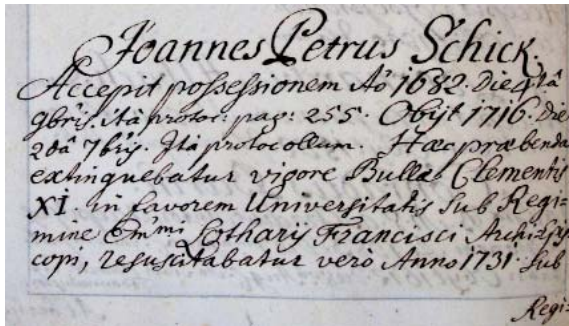 Joannes Petrus Schick,
Accepit possessionem Aõ 1682. Die 4tâ
9bris. ità protoc: pag: 255. Obijt 1716. Die
2dâ 7bris. Ita protocollum. Hæc præbenda
extinguebatur vigore Bullæ Clementis
XI. in favorem Universitatis sub Regi=
mine Emi Lotharij Francisci Archi-Epis
copi, resuscitabatur verò Anno 1731. sub
Regi=